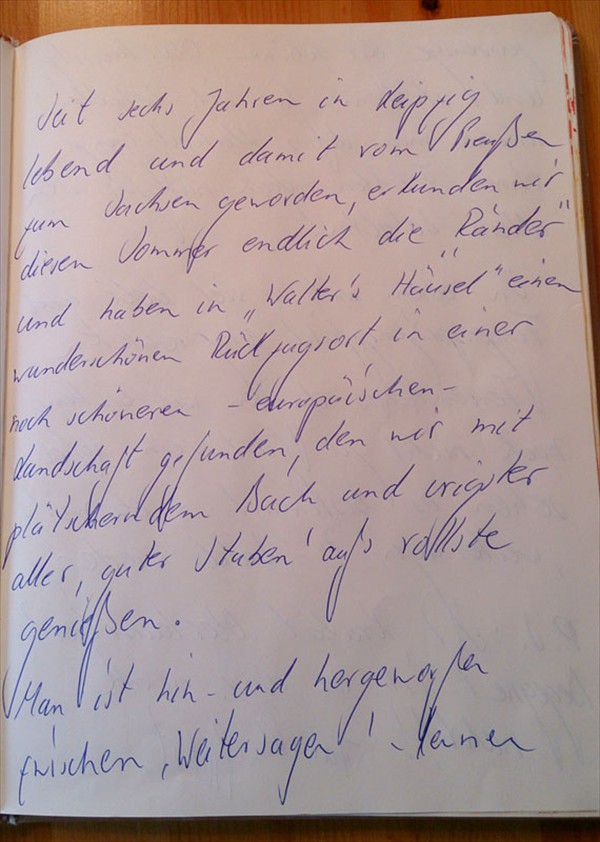 Seit sechs Jahren in Leipzig
lebend und damit vom Preußen
zum Sachsen geworden, erkunden wir
diesen Sommer endlich die „Ränder"
und haben in „Walter's Häusel" einen
wunderschönen Rückzugsort in einer
noch schöneren - europäischen -
Landschaft gefunden, den wir mit
plätscherndem Bach und urigster
aller ‚guter Stuben' aufs vollste
genießen.
Man ist hin- und hergeworfen
zwischen ‚Weitersagen' -